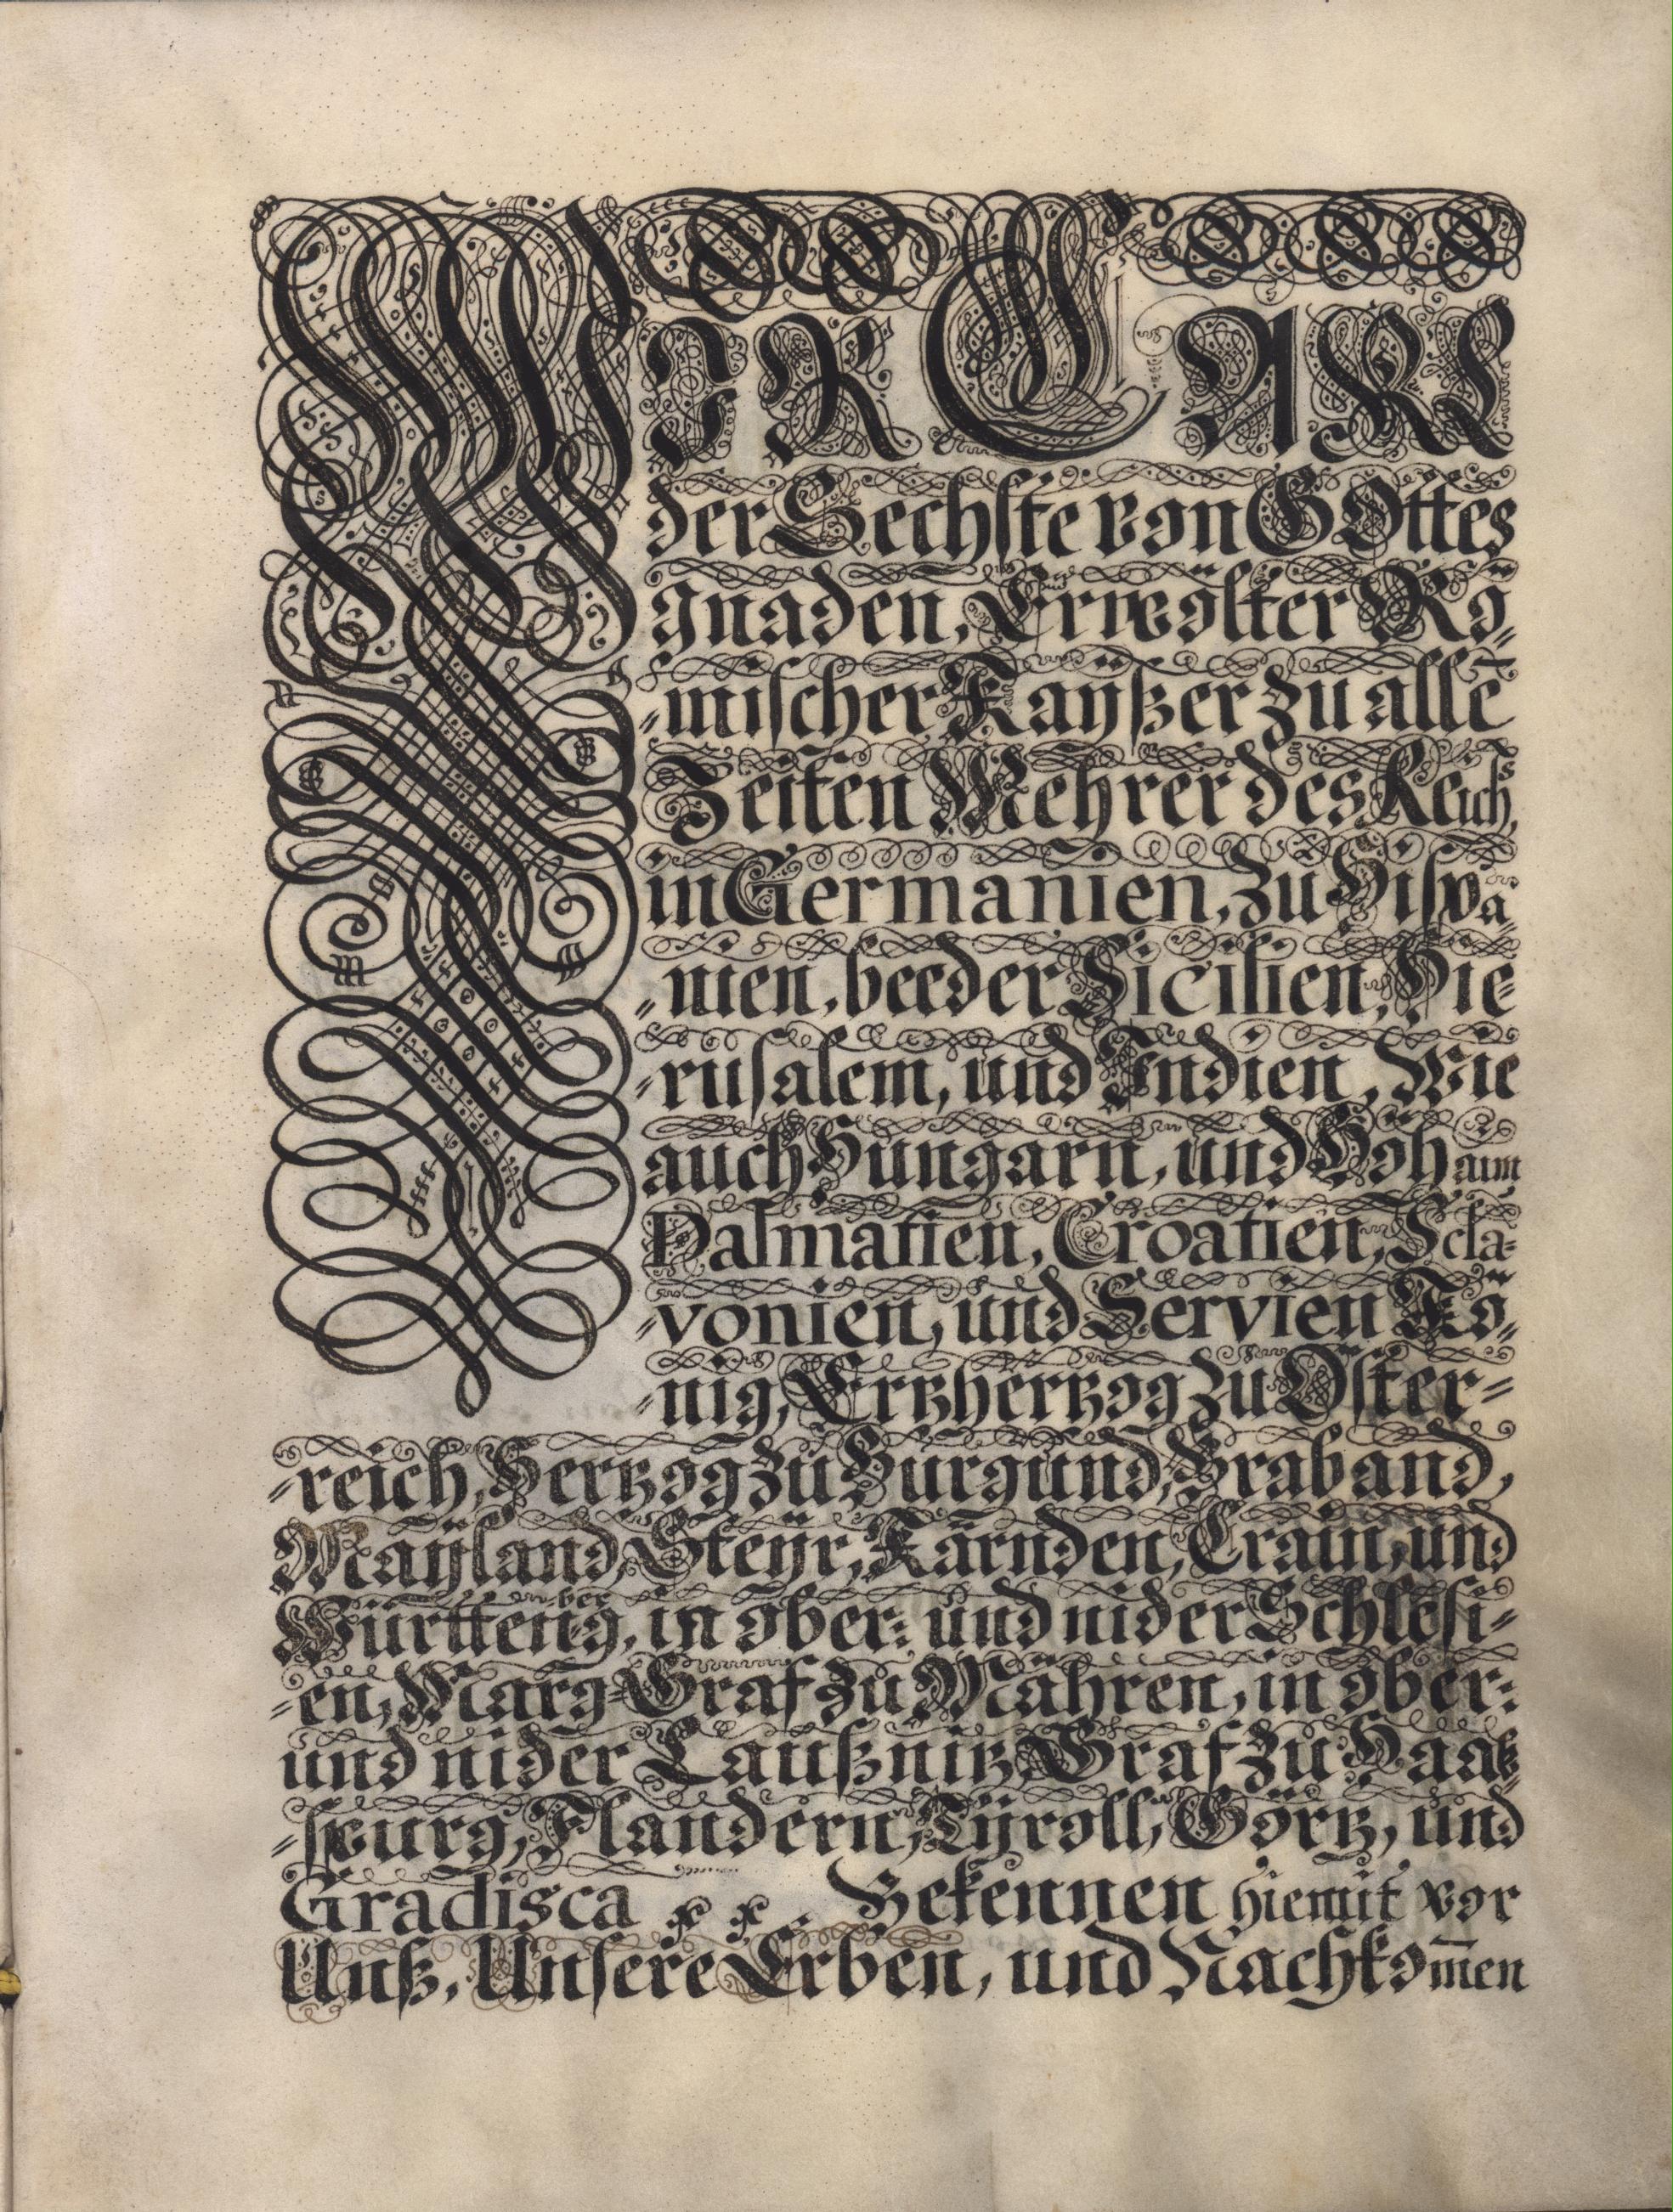 WIR CARL
der Sechste von GOttes
gnaden, Erwölter Rö„
„mischer Kayßer zu allē
Zeiten Mehrer des Reichs,
in Germanien, zu Hispa„
„nien, beeder Sicilien, Hie„
„rusalem, und Indien, Wie
auch Hungarn, und Böhaim
Dalmatien, Croatien, Scla„
„vonien, und Servien Kö„
„nig, Ertzhertzog zu Öster„
„reich, Hertzog zu Burgund, Braband,
Maÿland, Steyr, Kärnden, Crain, und
Württenberg, in ober: und nider Schlesi„
„en, Marg„Graf zu Mähren, in ober:
und nider Laußnitz, Graf zu Haab„
„spurg, Flandern, Tÿroll, Görtz, und
Gradisca Bekennen hiemit vor
Unß, Unsere Erben, und Nachkom̄en